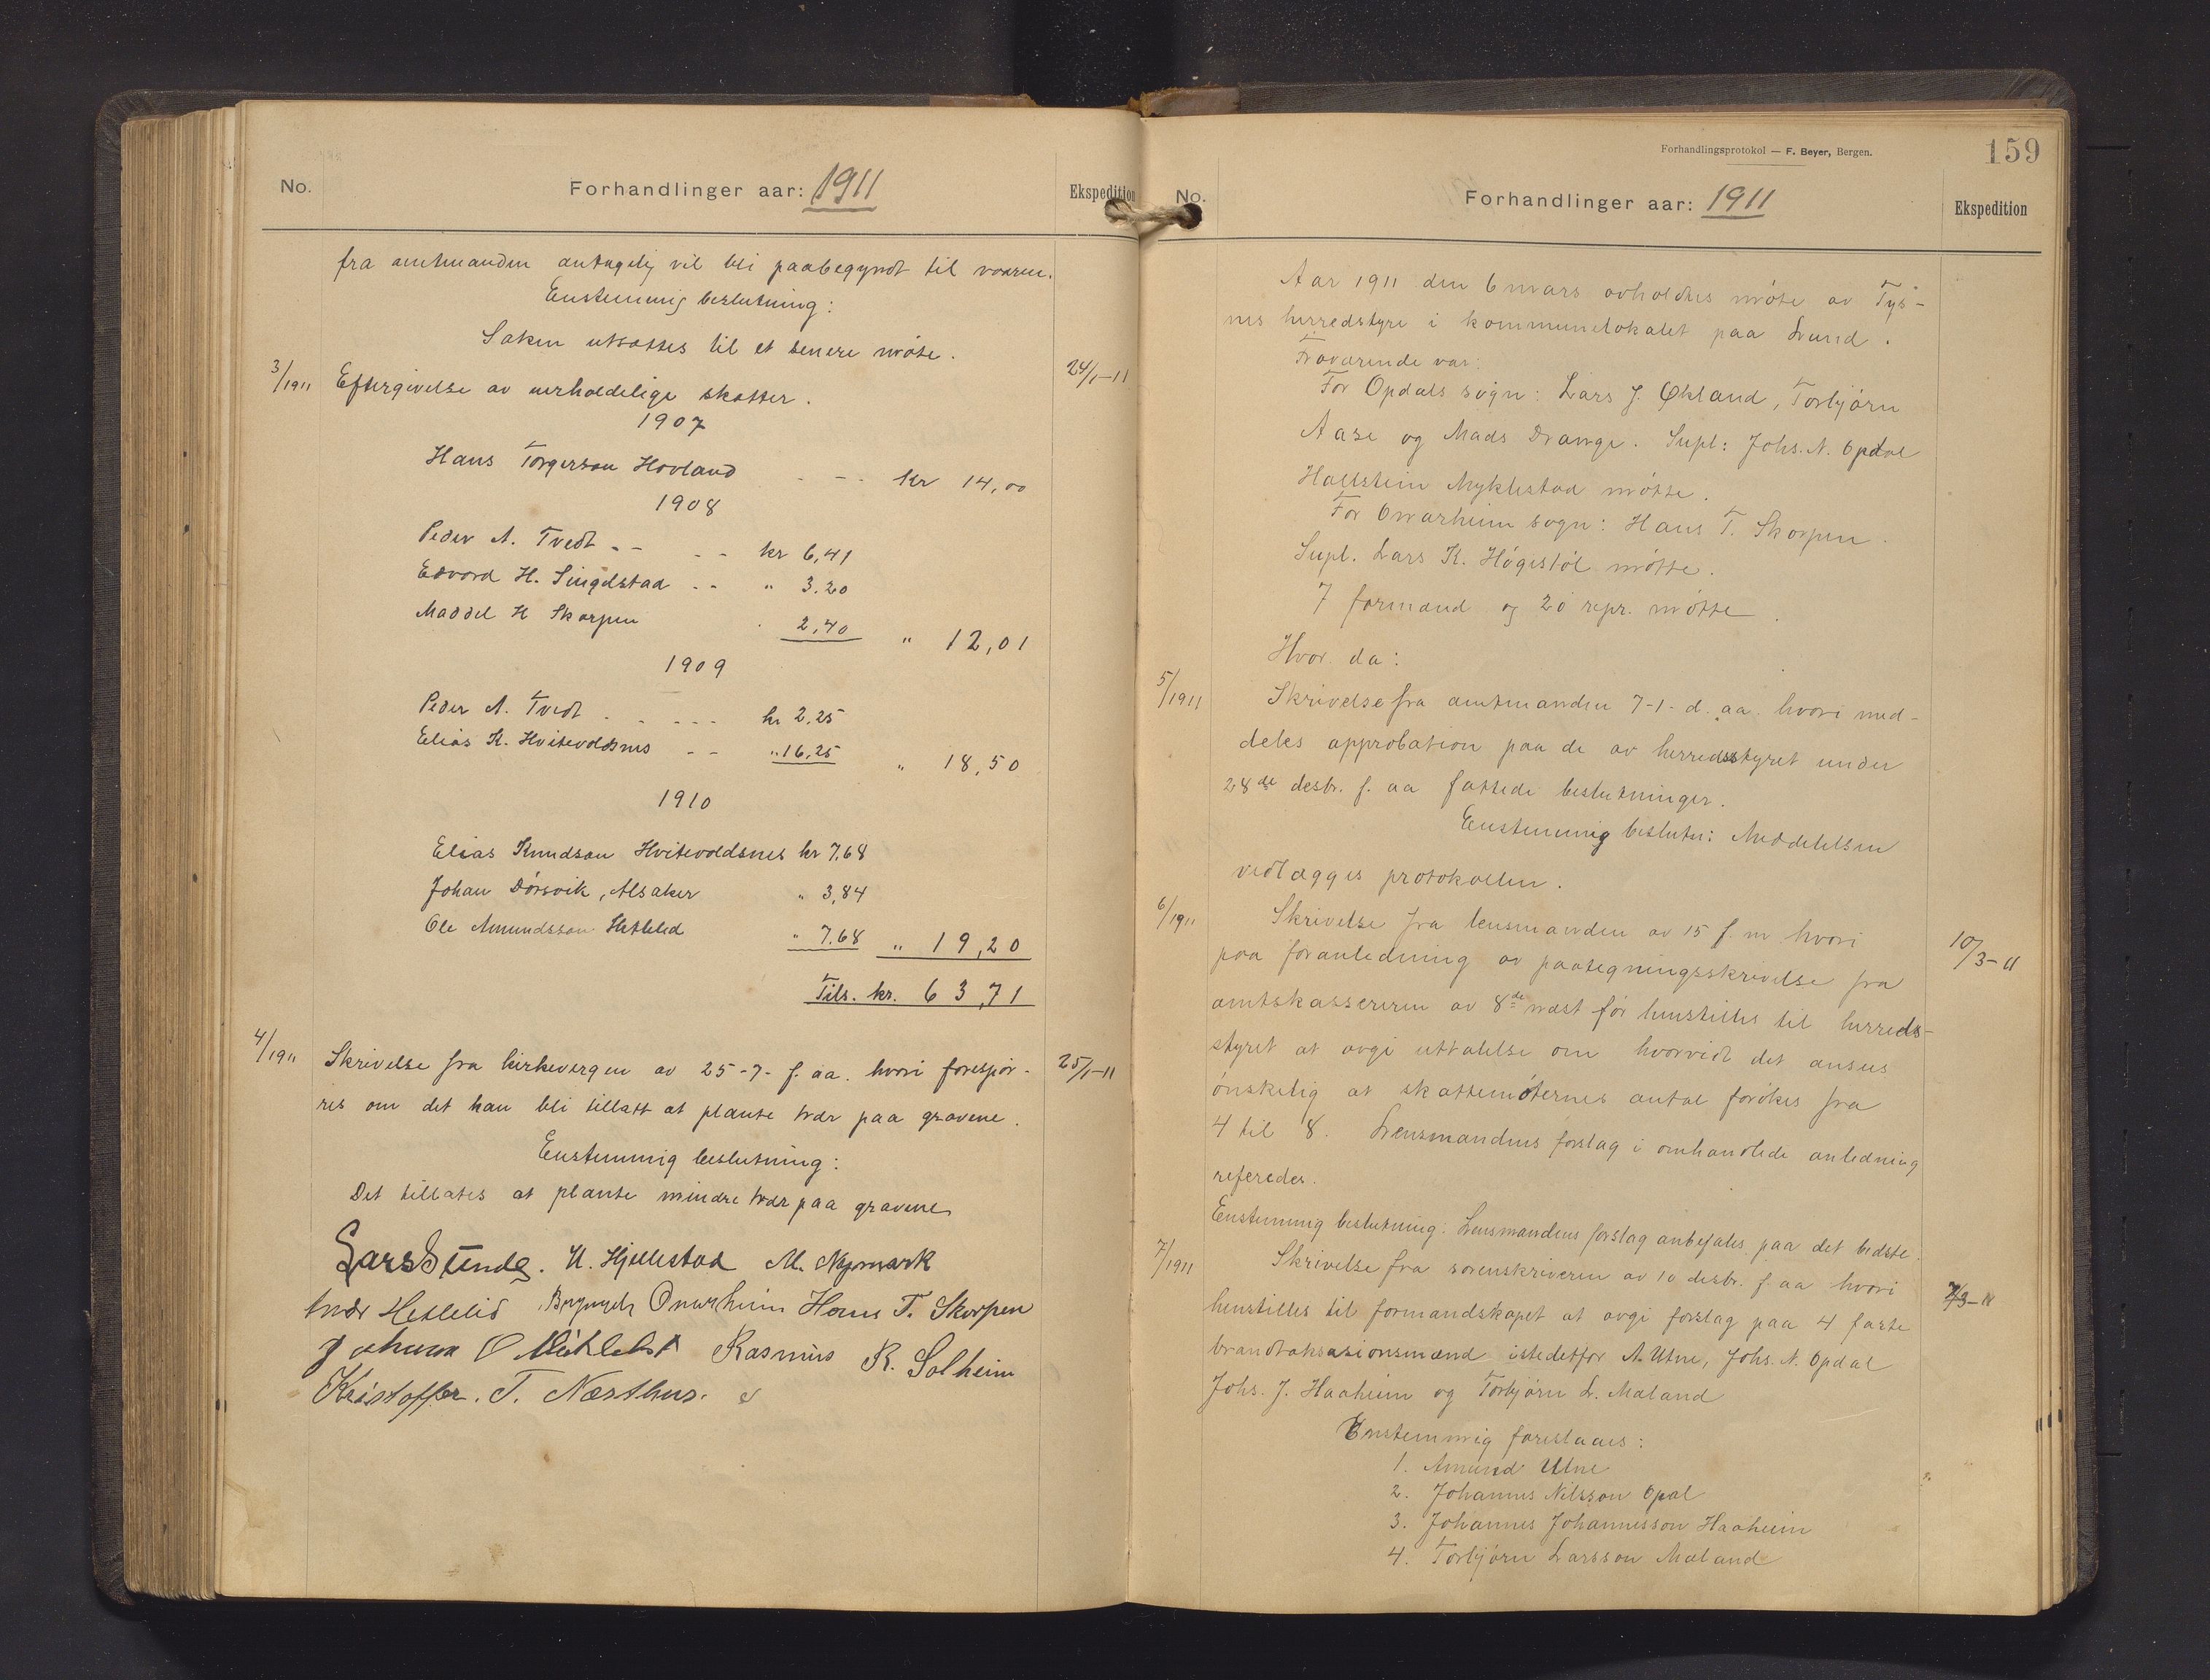 No. Forhandlinger aar: 1911 Ekspedition
fra amtmanden antagelig vil bli paabegyndt til vaaren.
Enstemmig beslutning:
Saken utsættes til et senere møte.
3/1911 Eftergivelse av uerholdelige skatter. 24/1-11
1907
Hans Torgerson Hovland - - - kr 14,00
1908
Peder A. Tvedt - - - - kr 6,41
Edvard H. Singelstad - - " 3.20
Maddel H Skorpen 2,40 " 12,01
1909
Peder A. Tvedt - - - - kr 2,25
Elias K. Hvitevoldsnes - - " 16,25 " 18,50
1910
Elias Knudson Hvitevoldsnes kr 7,68
Johan Dørsvik, Alsaker " 3,84
Ole Amundsson Hetlelid " 7,68 " 19,20
Tils. kr. 63,71
4/1911 Skrivelse fra kirkevergen av 25-7- f. aa. hvori forespør- 25/1-11
res om det kan bli tillatt at plante trær paa gravene.
Enstemmig beslutning:
Det tillates at plante mindre trær paa gravene
Lars Sunde. H. Hjellestad M. Nymark
Ivar Hetlelid Brynjulv Onarheim Hans T. Skorpen
Johan O Rasmus R. Solheim
Kristoffer. T. Næsthus.
Forhandlingsprotokol — F. Beyer, Bergen.
159
No. Forhandlinger aar: 1911 Ekspedition
Aar 1911 den 6 mars avholdtes møte av Tys-
nes herredstyre i kommunelokalet paa Lund.
Fraværende var:
For Opdals sogn: Lars J. Økland, Torbjørn
Aase og Mads Drange. Supl: Johs. N. Opdal
Hallstein Myklestad møtte.
For Onarheim sogn: Hans T. Skorpen.
Supl. Lars K. Høgistøl møtte.
7 formænd og 20 repr. møtte.
Hvor da:
5/1911 Skrivelse fra amtmanden 7-1- d. aa. hvori med-
deles approbation paa de av herredsstyret under
28de desbr. f. aa fattede beslutninger.
Enstemmig beslutn: Meddelelsen
vedlægges protokollen.
6/1911 Skrivelse fra lensmanden av 15 f. m hvori 10/3-11
paa foranledning av paategningsskrivelse fra
amtskassereren av 8de næst før henstilles til herreds-
styret at avgi uttalelse om hvorvidt det ansees
ønskelig at skattemøternes antal forøkes fra
4 til 8. Lensmandens forslag i omhandlede anledning
referedes.
Enstemmig beslutning: Lensmandens forslag anbefales paa det bedste.
7/1911 Skrivelse fra sorenskriveren av 10 desbr. f. aa hvori 7/3-11
henstilles til formandskapet at avgi forslag paa 4 faste
brandtaksasionsmænd istedetfor A. Utne, Johs. N. Opdal
Johs. J. Haaheim og Torbjørn L. Mæland
Enstemmig foreslaaes:
1. Amund Utne
2. Johannes Nilsson Opal
3. Johannes Johannesson Haaheim
4. Torbjørn Larsson Mæland